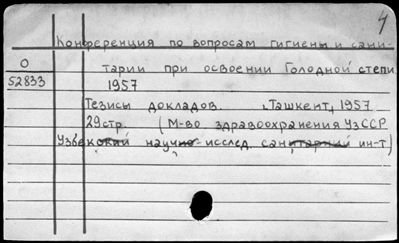 4
Конференция по вопросам гигиены и сани-
О
52833
тарии при освоении Голодной степи.
1957
Тезисы докладов. Ташкент, 1957
29стр. (М-во здравоохранения УзССР
Узбекский научно-исслед. санитарный ин-т)